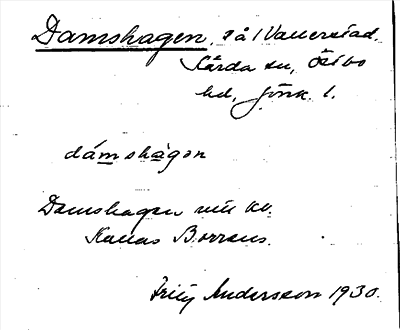 Damshagen,så i Vallerstad.
Kärda sn, Östbo
hd, Jönk. l.
dámshàgən
Damshagen
Kallas Borrens.
Fritz Andersson 1930.